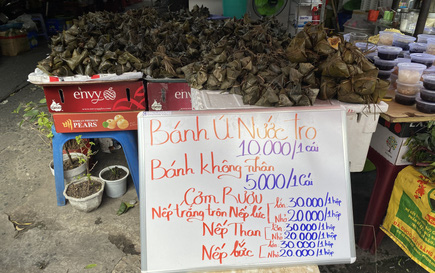 envy
envy
PEARS
Bánh Ú Nước Tro
10.000/1 cái
Bánh không nhân
5000/1 Cái
Cơm Rượu
Nếp trắng trộn Nếp lức
lớn 30.000/1 hộp
Nhỏ 20.000/1 hộp
Nếp Than
lớn 30.000/1 hộp
Nhỏ 20.000/1 hộp
Nếp lức
lớn 30.000/1 hộp
Nhỏ 20.000/1 hộp